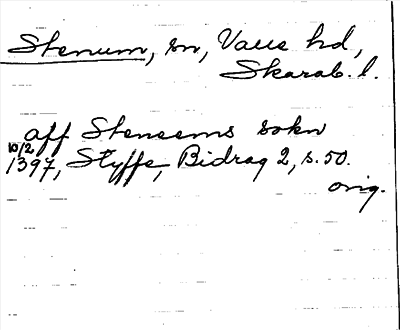 Stenum, sn, Valle hd,
Skarab. l.
aff Steneems sokn
10/2
1397, Styffe, Bidrag 2, s. 50.
orig.